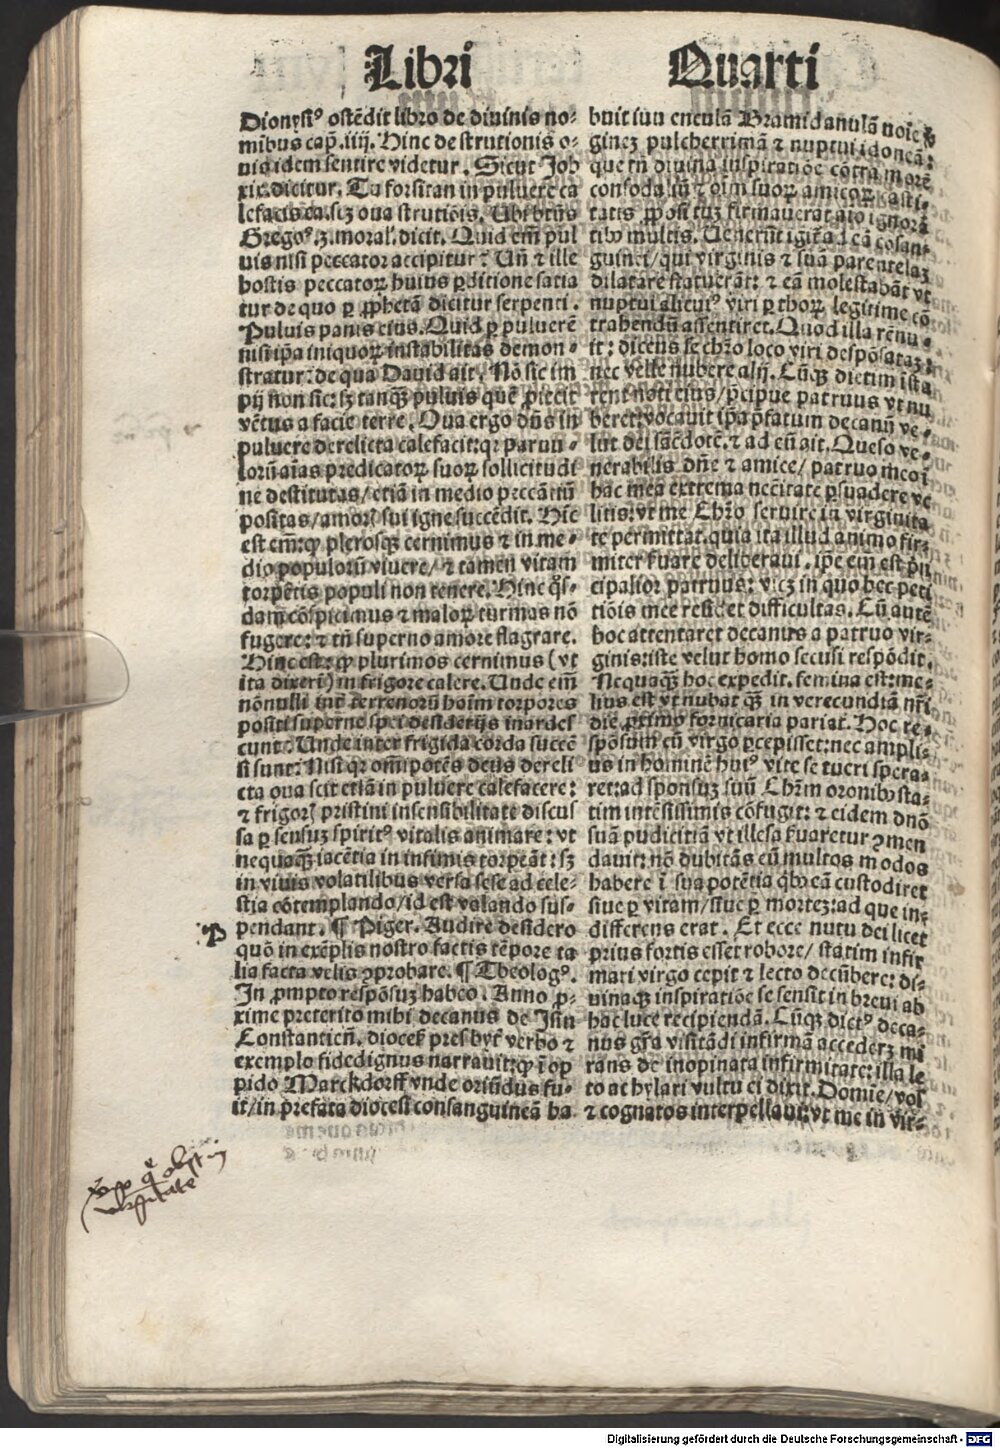 Libri Quarti
Dionysiꝰ ostēdit libro de diuinis no-
mibus cap̄. iiij. Hinc de strutionis o-
uis idem sentire videtur. Sicut Job
xix. dicitur. Tu forsitan in puluere ca
lefacis ea. sꝫ oua strutiōis. Ubi btūs
Gregoꝰ. ꝫ. moral̓. dicit. Quid em̄ pul
uis nisi peccator accipitur? Un̄ ⁊ ille
hostis peccatoꝝ huius ꝑditione satia
tur de quo ꝑ ꝓphetā dicitur serpenti.
Puluis panis eius. Quid ꝑ puluerē
nisi ip̄a iniquoꝝ instabilitas demon-
stratur: de qua Dauid ait. Nō sic im
pij non sic: sꝫ tanqꝫ puluis quē ꝓiecit
vētus a facie terre. Oua ergo dn̄s in
puluere derelicta calefacit: qꝛ paruu-
loꝝ aīas predicatoꝝ suoꝝ sollicitudi
ne destitutas/etiā in medio peccātiū
positas/amoris sui igne succēdit. Hīc
est em̄: ꝙ plerosqꝫ cernimus ⁊ in me-
dio populoꝝ viuere/⁊ tamen vitam
torpētis populi non tenere. Hinc q̄s-
dam cōspicimus ⁊ maloꝝ turmas nō
fugere: ⁊ tn̄ superno amore flagrare.
Hinc est: ꝙ plurimos cernimus (vt
ita dixerī) in frigore calere. Unde em̄
nōnulli int̄ terrenoꝝ hoīm torpores
positi superne spei desiderijs inardes
cunt? Unde inter frigida corda succē
si sunt? Nisi qꝛ om̄ipotēs deus dereli
cta oua scit etiā in puluere calefacere:
⁊ frigoris pristini insensibilitate discus
sa ꝑ sensuꝫ spiritꝰ vitalis animare: vt
nequaqꝫ iacētia in infimis torpeāt: sꝫ
in viuis volatilibus versa sese ad cele-
stia cōtemplando/id est volando sus-
pendant. ¶ Piger. Audire desidero
quō in exēplis nostro factis tēpore ta
lia facta velis ꝯprobare. ¶ Theologꝰ.
In ꝓmpto respōsuꝫ habeo. Anno ꝓ-
xime preterito mihi decanus de Jsni
Constantien̄. dioceſ presbyt̓ verbo ⁊
exemplo fidedignus narrauit: ꝙ ī op
pido Marckdorff vnde oriūdus fu-
it/in p̄fata diocesi consanguineā ha-
buit
ginez pulcherrimā ⁊ nuptui idoneā:
que tn̄ diuina inspiratiōe cōtra morē
tatis ꝓpositum firmauerat aīo ignorā
tibꝰ multis. Uenerūt igit̄ ad eā cōsan-
guinei/qui virginis ⁊ suā parentelaꝫ
dilatare statuerāt: ⁊ eā molestabāt vt
nuptui alicuiꝰ viri ꝑ thoꝝ legitime cō
trahendū assentiret. Quod illa rēnu-
it: dicens se chr̄o loco viri despōsataꝫ:
nec velle nubere alij. Cūqꝫ dictim ista
rent noti eius/p̄cipue patruus vt nu
beret: vocauit ip̄a p̄fatum decanū ve-
lut dei sacdotē. ⁊ ad eū ait. Queso ve-
nerabilis dn̄e ⁊ amice/patruo meo ī
hac mea extrema nēcitate ꝑsuadere ve
litis: vt me Chr̄o seruire in virginita
te permittat. quia ita illud animo fir-
miter ẜuare deliberaui. ip̄e em̄ est p̄n
cipalior patruus: vicꝫ in quo hec peti
tiōis mee residet difficultas. Cū autē
hoc attentaret decanus a patruo vir-
ginis: iste velut homo seculi respōdit.
Nequaqꝫ hoc expedit. femina est: me-
lius est vt nubat q̄ꝫ in verecundiā nr̄i
die ꝓximo fornicaria pariat. Hoc re-
spōsum cū virgo ꝑcepisset: nec ampli-
us in hominē huiꝰ vite se tueri spera-
ret: ad sponsuꝫ suū Chr̄m oronibꝰ sta-
tim intēsissimis cōfugit: ⁊ eidem dn̄o
suā pudicitiā vt illesa ẜuaretur ꝯmen
dauit: nō dubitās eū multos modos
habere ī sua potētia q̄bꝰ eā custodiret
siue ꝑ vitam/siue ꝑ mortez: ad que in-
differens erat. Et ecce nutu dei licet
prius fortis esset robore/statim infir
mari virgo cepit ⁊ lecto decūbere: di-
uinaqꝫ inspiratiōe se sensit in breui ab
hac luce recipiendā. Cūqꝫ dictꝰ deca-
nus gr̄a visitādi infirmā accederꝫ mi
rans de inopinata infirmitate: illa le
to ac hylari vultu ei dixit. Domīe/vos
⁊ cognatos interpellaui: vt me in vir-
Digitalisierung gefördert durch die Deutsche Forschungsgemeinschaft - DFG